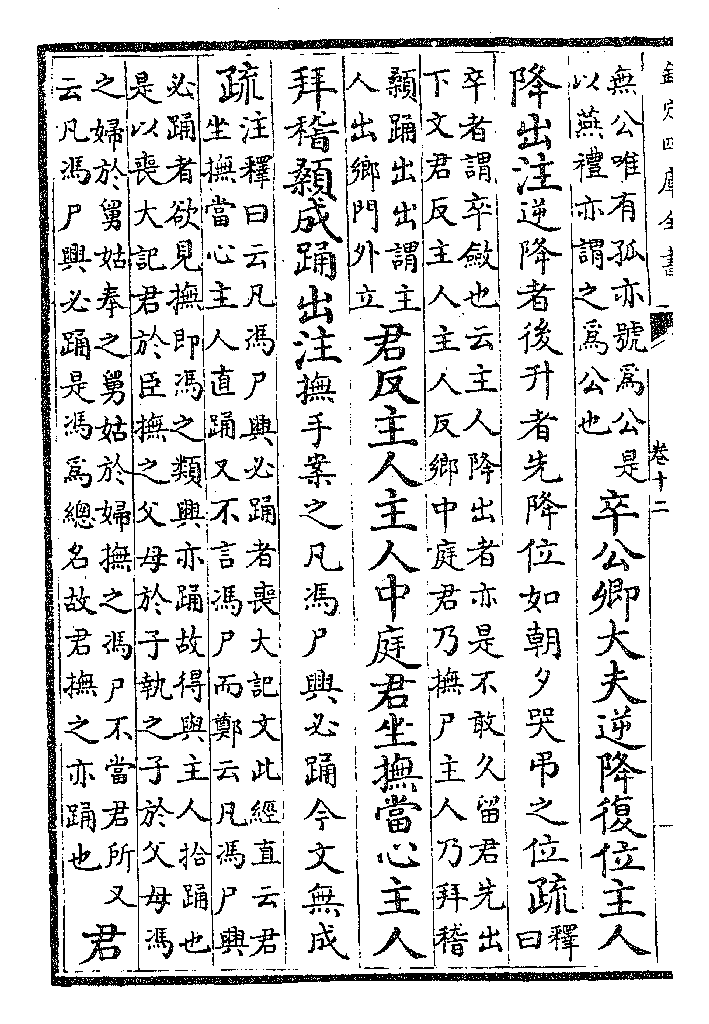 欽定四庫全書 卷十二
無公唯有孤亦號爲公是
以燕禮亦謂之爲公也
卒公卿大夫逆降復位主人
降出注逆降者後升者先降位如朝夕哭弔之位疏釋
曰
卒者謂卒斂也云主人降出者亦是不敢久留君先出
下文君反主人主人反鄉中庭君乃撫尸主人乃拜稽
顙踊出出謂主
人出鄉門外立
君反主人主人中庭君坐撫當心主人
拜稽顙成踊出注撫手案之凡馮尸興必踊今文無成
疏
注釋曰云凡馮尸興必踊者喪大記文此經直云君
坐撫當心主人直踊又不言馮尸而鄭云凡馮尸興
必踊者欲見撫即馮之類興亦踊故得與主人拾踊也
是以喪大記君於臣撫之父母於子執之子於父母馮
之婦於舅姑奉之舅姑於婦撫之馮尸不當君所又
云凡馮尸興必踊是馮爲總名故君撫之亦踊也
君